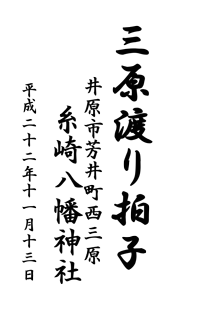 三原渡り拍子
井原市芳井町西三原
糸崎八幡神社
平成二十二年十一月十三日